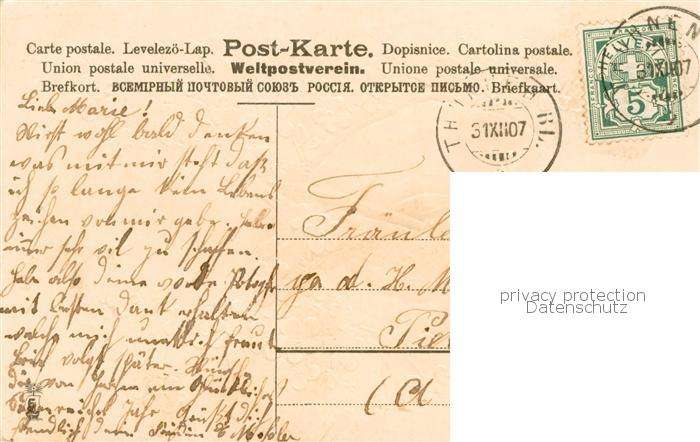 Carte postale. Levelező-Lap. Post-Karte. Dopisnice. Cartolina postale.
Union postale universelle. Weltpostverein. Unione postale universale.
Brefkort. ВСЕМІРНЫЙ ПОЧТОВЫЙ СОЮЗЪ РОССІЯ. ОТКРЫТОЕ ПИСЬМО. Briefkaart.
HELVETIA
5
31XII07
31XII07
Liebe Marie!
Wirst wohl bald denken
was mit mir steht daß
ich so lange kein Lebens
zeichen von mir gebe. Habe
immer sehr vil zu schaffen.
Habe also deine werte
mit besten Dank erhalten
welche mich freut
Brief volgt später.
von Herzen ein
Jahr
Fräule
d. H. M
privacy protection
Datenschutz